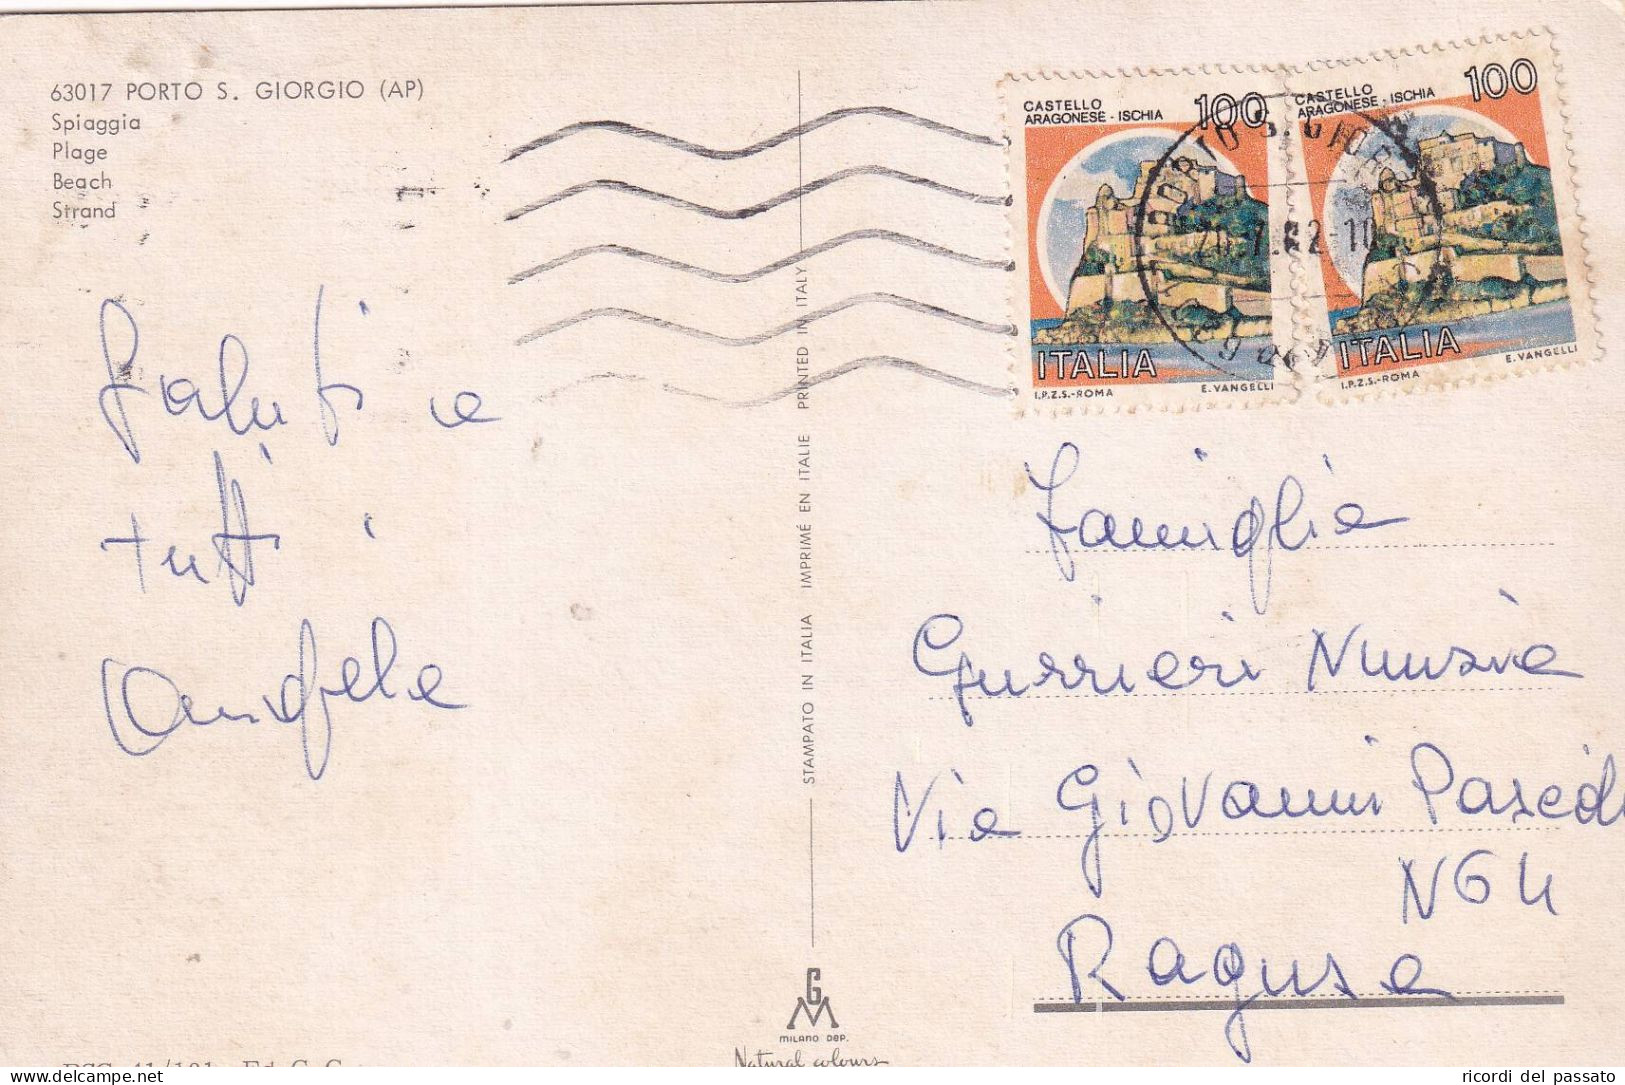 63017 PORTO S. GIORGIO (AP)
Spiaggia
Plage
Beach
Strand
Saluti a
tutti
Angela
STAMPATO IN ITALIA IMPRIMÉ EN ITALIE PRINTED IN ITALY
CASTELLO
ARAGONESE - ISCHIA
100
ITALIA
I.P.Z.S.-ROMA
E. VANGELLI
CASTELLO
ARAGONESE - ISCHIA
100
ITALIA
I.P.Z.S.-ROMA
E. VANGELLI
Famiglia
Gurrieri Nunzia
Via Giovanni Pascoli
N64
Ragusa
GM
MILANO DEP.
Natural colours
ricordi del passato